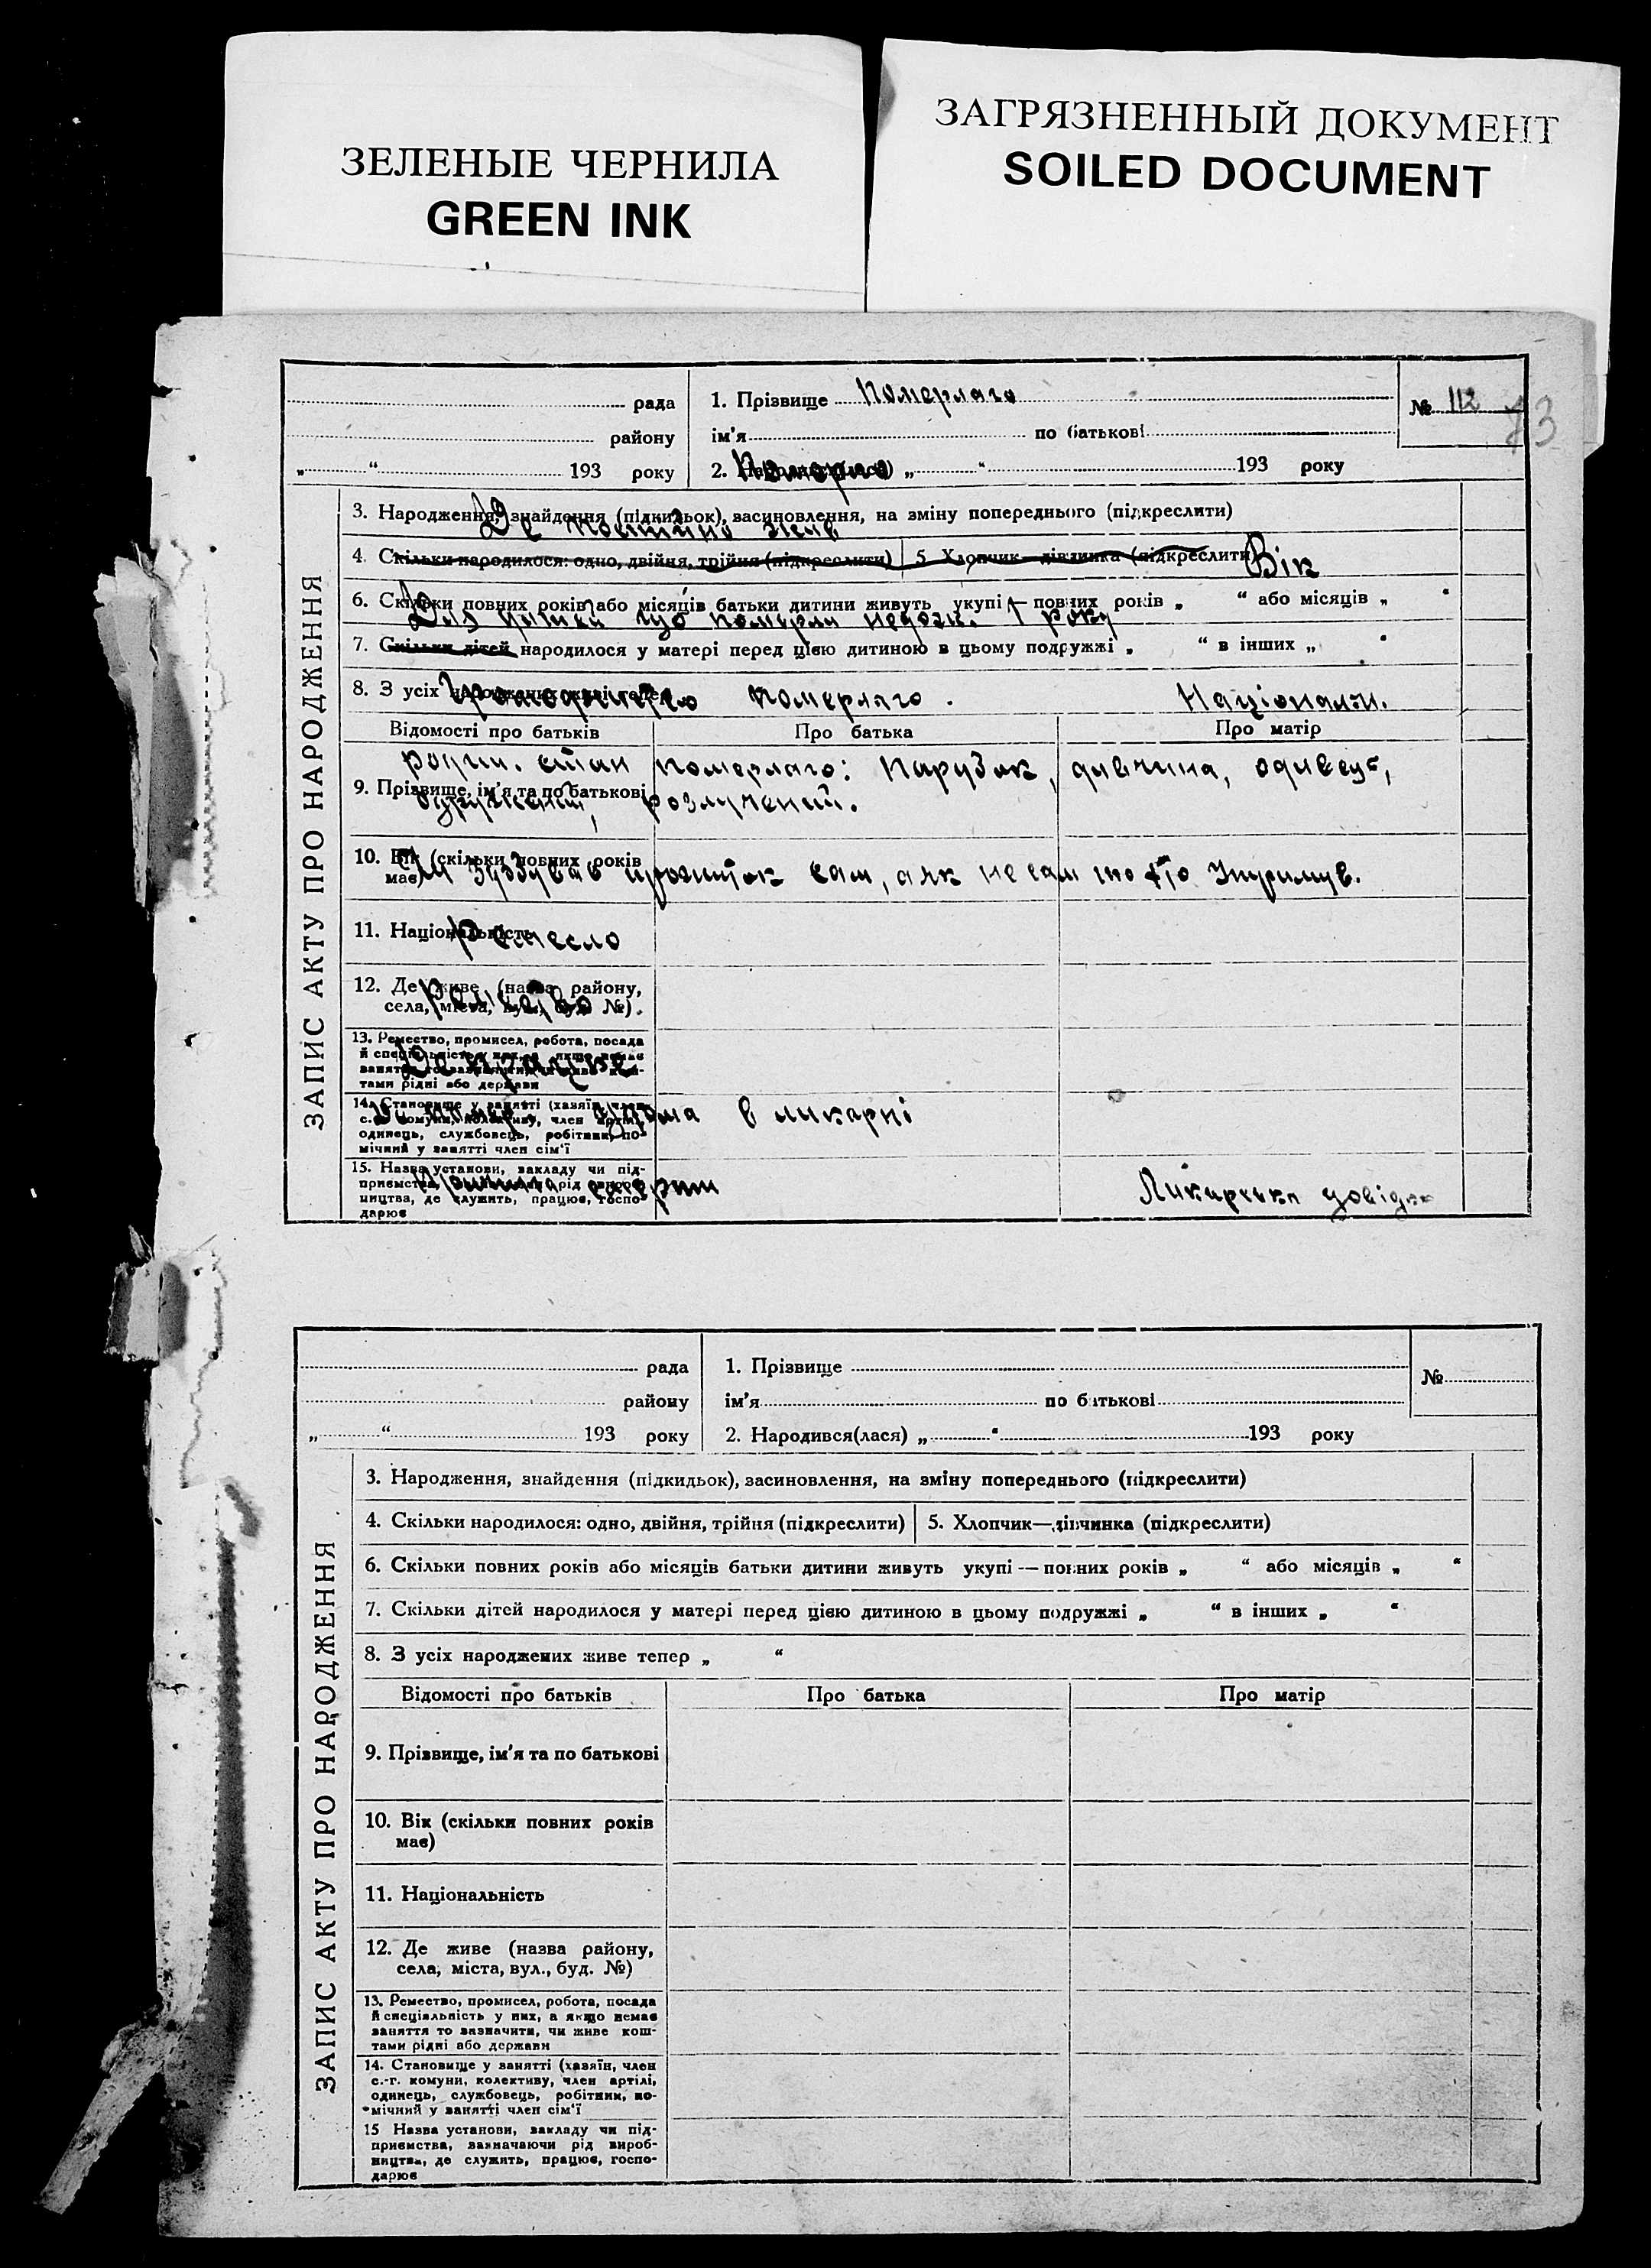 ЗЕЛЕНЫЕ ЧЕРНИЛА
GREEN INK
ЗАГРЯЗНЕННЫЙ ДОКУМЕНТ
SOILED DOCUMENT
рада
району
„ “ 193 року
1. Прізвище Померлаго
ім'я по батькові
2. Померло „ “ 193 року
№ 112
73
ЗАПИС АКТУ ПРО НАРОДЖЕННЯ
3. Народження, знайдення (підкидьок), засиновлення, на зміну попереднього (підкреслити)
Де постійно жив
4. Скільки народилося: одно, двійня, трійня (підкреслити) 5. Хлопчик—дівчинка (підкреслити)
Вік
6. Скільки повних років або місяців батьки дитини живуть укупі — повних років „ “ або місяців „ “
Для дитей що померли 1 року
7. Скільки дітей народилося у матері перед цією дитиною в цьому подружжі „ “ в інших „ “
8. З усіх народжених живе тепер
померлаго. Національн.
Відомості про батьків Про батька Про матір
родин. стан померлаго: парубок, дивчина, одивец,
9. Прізвище, ім'я та по батькові
одружений, розлучений.
10. Вік (скільки повних років
має)
прожиток сам, а як не сам то хто утримув.
11. Національність
Ремесло
12. Де живе (назва району,
села, міста, вул., буд. №)
13. Ремество, промисел, робота, посада
й спеціяльність у них, а якщо немає
заняття то зазначити, чи живе кош-
тами рідні або держави
Де працюе
14. Становище у занятті (хазяїн, член
с.-г. комуни, колективу, член артілі,
одинець, службовець, робітник, по-
мічний у занятті член сім'ї
помер. удома в ликарні
15. Назва установи, закладу чи під-
приємства, зазначаючи рід вироб-
ництва, де служить, працює, госпо-
дарює
Причина смерти
Ликарська довідка
рада
району
„ “ 193 року
1. Прізвище
ім'я по батькові
2. Народився(лася) „ “ 193 року
№
ЗАПИС АКТУ ПРО НАРОДЖЕННЯ
3. Народження, знайдення (підкидьок), засиновлення, на зміну попереднього (підкреслити)
4. Скільки народилося: одно, двійня, трійня (підкреслити) 5. Хлопчик—дівчинка (підкреслити)
6. Скільки повних років або місяців батьки дитини живуть укупі — повних років „ “ або місяців „ “
7. Скільки дітей народилося у матері перед цією дитиною в цьому подружжі „ “ в інших „ “
8. З усіх народжених живе тепер „ “
Відомості про батьків Про батька Про матір
9. Прізвище, ім'я та по батькові
10. Вік (скільки повних років
має)
11. Національність
12. Де живе (назва району,
села, міста, вул., буд. №)
13. Ремество, промисел, робота, посада
й спеціяльність у них, а якщо немає
заняття то зазначити, чи живе кош-
тами рідні або держави
14. Становище у занятті (хазяїн, член
с.-г. комуни, колективу, член артілі,
одинець, службовець, робітник, по-
мічний у занятті член сім'ї
15 Назва установи, закладу чи під-
приємства, зазначаючи рід вироб-
ництва, де служить, працює, госпо-
дарює